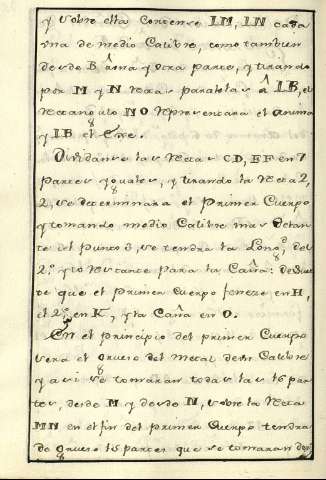 y sobre esta Contense IM, IN cada
una de medio Calibre, como tambien
desde B à una y otra parte, y tirando
por M y N rectas paralelas à IB, el
rectangulo NO representará el anima
y IB el Exe.
Dividanse las rectas CD, EF en 7
partes yguales, y tirando la recta 2,
2, se determinara el primer Cuerpo
y tomando medio Calibre mas delante
del punto 3, se tendra la Long.d del
2.º y lo restante para la Caña: de suer
te que el primer Cuerpo fenece en H,
el 2.º en K, y la Caña en O.
En el principio del primer Cuerpo
sera el grueso del metal de un Calibre
y asi se tomaran todas las 16 par
tes, desde M y desde N, sobre la recta
MN en el fin del primer Cuerpo tendra
de grueso 15 partes que se tomaran des